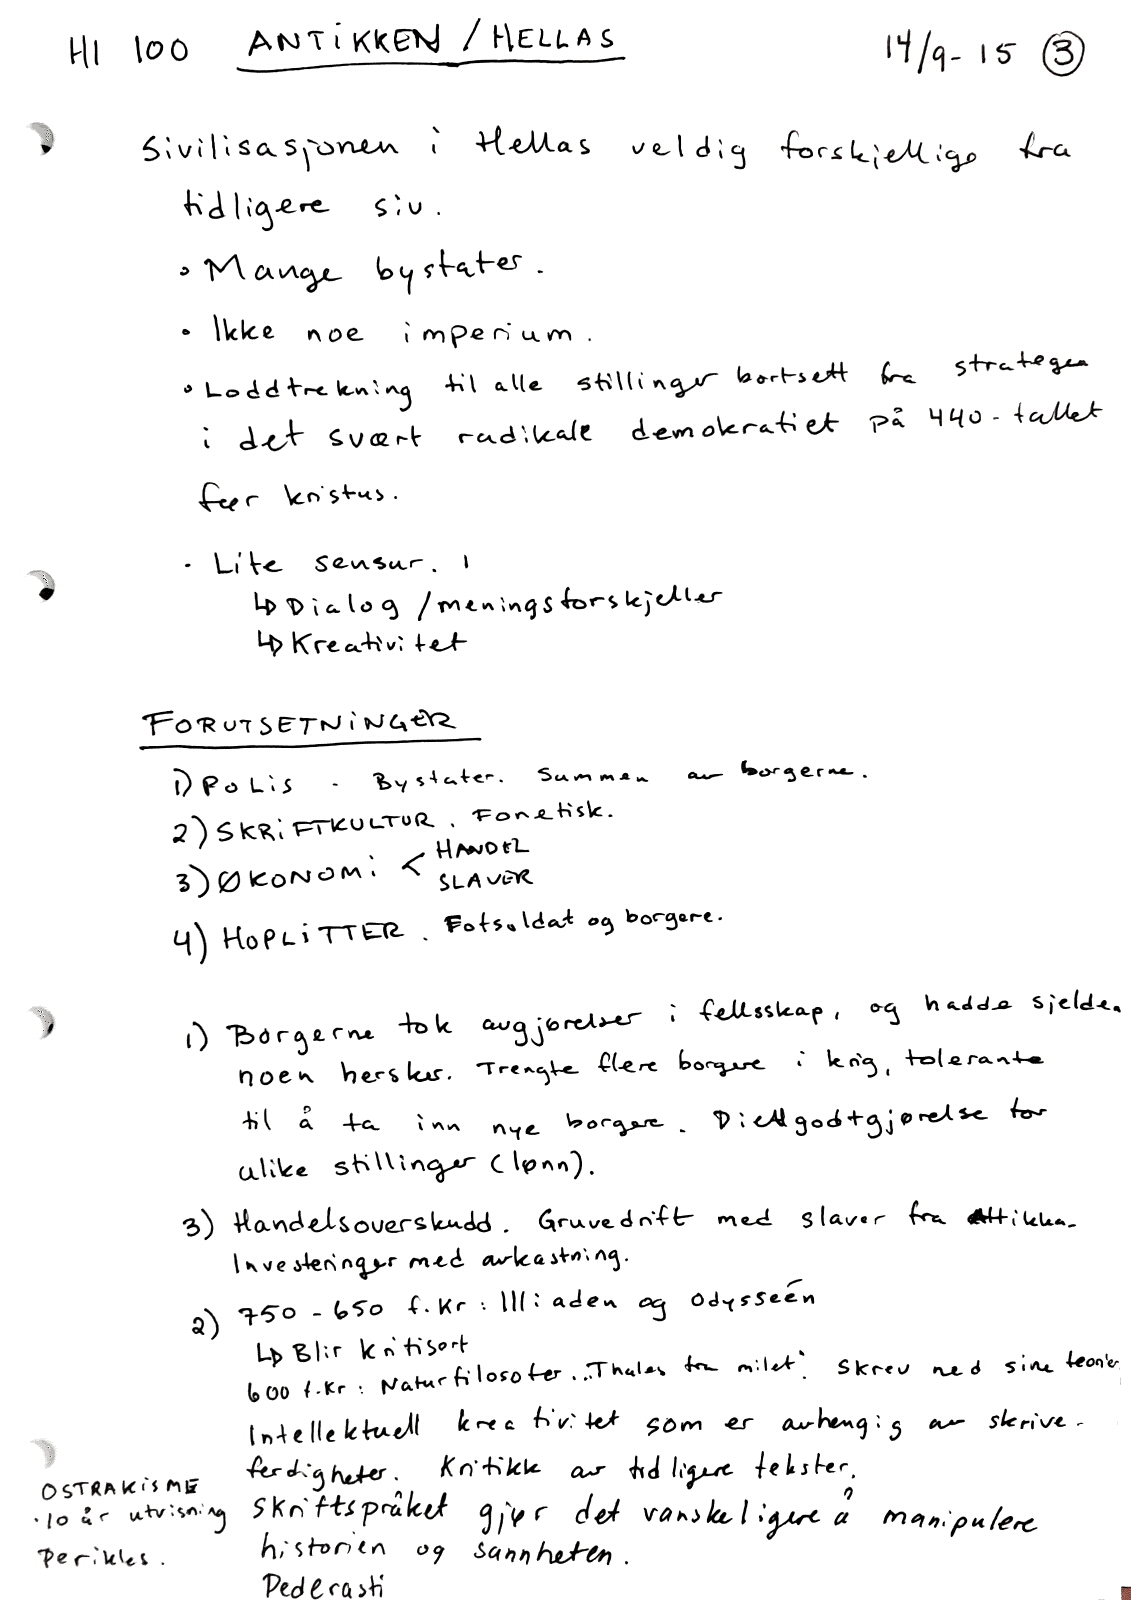 HI 100 ANTIKKEN / HELLAS 14/9-15 3
Sivilisasjonen i Hellas veldig forskjellige fra
tidligere siv.
• Mange bystater.
• Ikke noe imperium.
• Loddtrekning til alle stillinger bortsett fra strategen
i det svært radikale demokratiet på 440-tallet
før kristus.
• Lite sensur.
↳ Dialog / meningsforskjeller
↳ Kreativitet
FORUTSETNINGER
1) POLIS - Bystater. Summen av borgerne.
2) SKRIFTKULTUR. Fonetisk.
3) ØKONOMI < HANDEL
SLAVER
4) HOPLITTER. Fotsoldat og borgere.
1) Borgerne tok avgjørelser i fellsskap, og hadde sjelden
noen hersker. Trengte flere borgere i krig, tolerante
til å ta inn nye borgere. Diettgodtgjørelse for
ulike stillinger (lønn).
3) Handelsoverskudd. Gruvedrift med slaver fra Attikka.
Investeringer med avkastning.
2) 750 - 650 f.Kr : Illiaden og Odysseén
↳ Blir kritisert
600 f.Kr : Naturfilosofer... "Thales fra milet". Skrev ned sine teorier
Intellektuell kreativitet som er avhengig av skrive-
ferdigheter. Kritikk av tidligere tekster.
Skriftspråket gjør det vanskeligere å manipulere
historien og sannheten.
Pederasti
OSTRAKISME
• 10 år utvisning
Perikles.